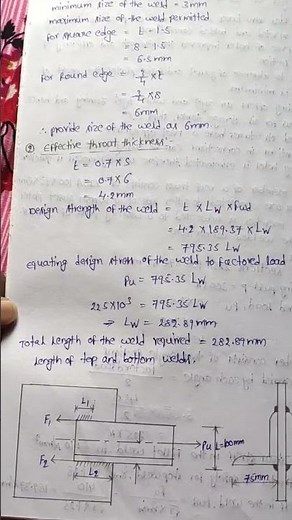 minimum size of the weld = 3mm
maximum size of the weld permitted
for square edge = t - 1.5
= 8 - 1.5
= 6.5mm
For Round edge = 3/4 × t
= 3/4 × 8
= 6mm
∴ provide size of the weld as 6mm
Effective throat thickness:
t = 0.7 × S
= 0.7 × 6
= 4.2mm
Design strength of the weld = t × Lw × fwd
= 4.2 × 189.37 × Lw
= 795.35 Lw
equating design stress of the weld to factored load
Pu = 795.35 Lw
225×10³ = 795.35 Lw
⇒ Lw = 282.89mm
Total Length of the weld required = 282.89mm
Length of top and bottom welds.
L1
F1
Pu
L=100mm
F2
L2
75mm